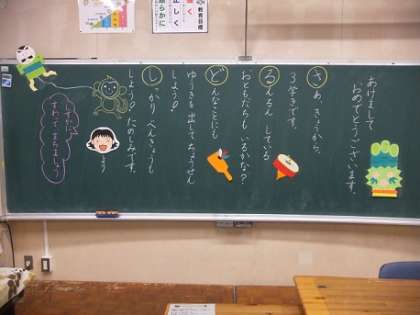 教育目標
あけまして
おめでとうございます。
さあ、きょうから、
3学きです。
るんるん している
おともだちも いるかな?
どんなことにも
ゆうきを 出して ちょうせん
しよう!
しっかり べんきょうも
しよう! たのしみです。
すわって まちましょう